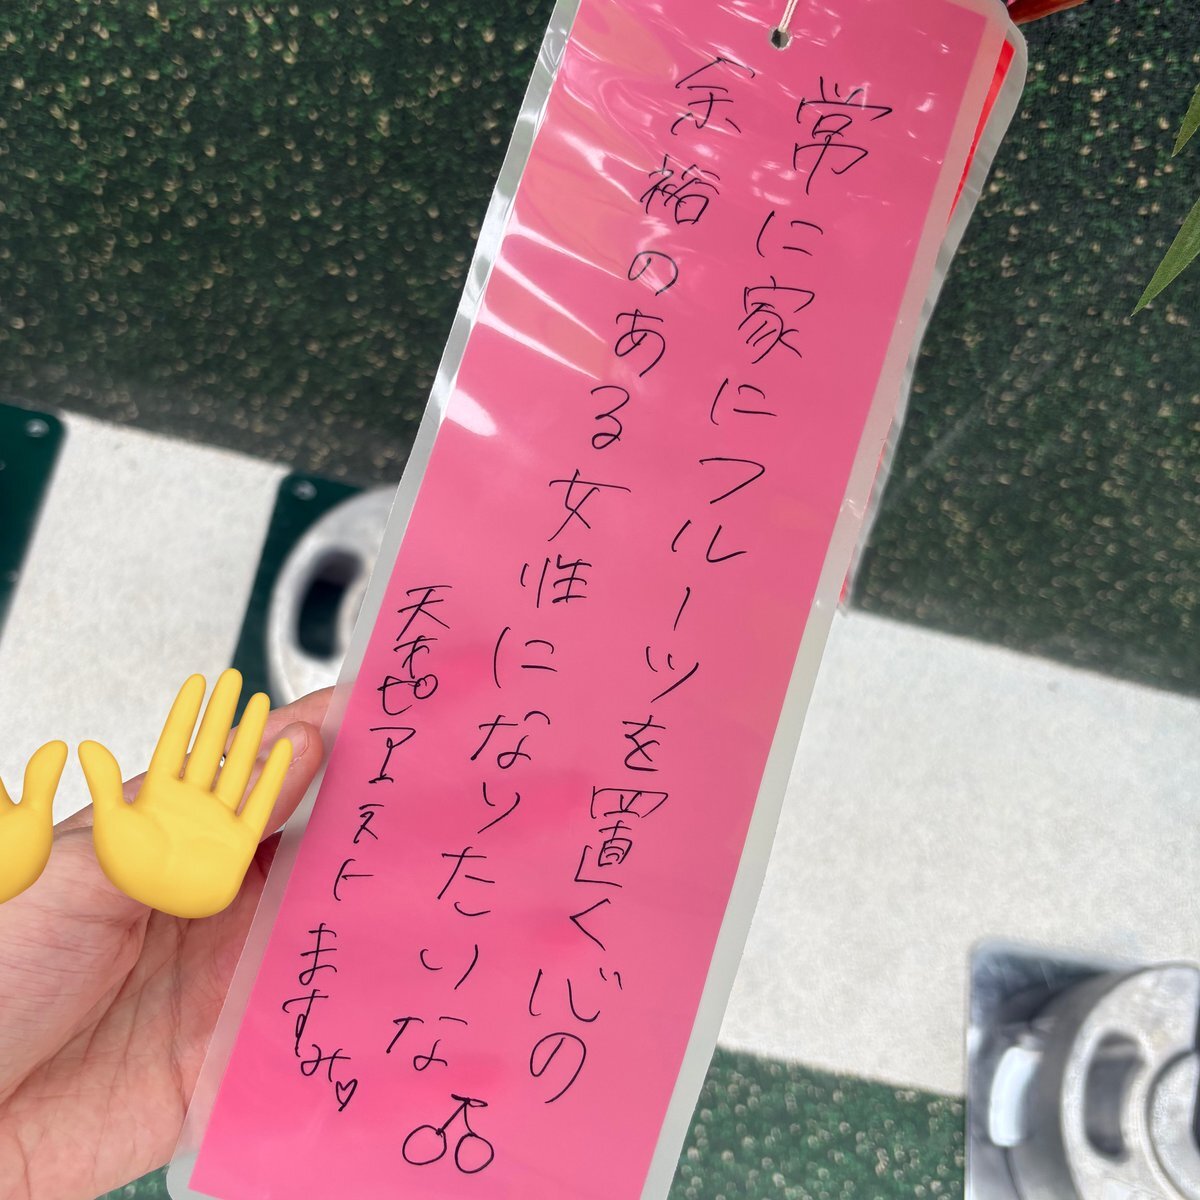 常に家にフルーツを置く心の
余裕のある女性になりたいな
天才ピアニストますみ♡